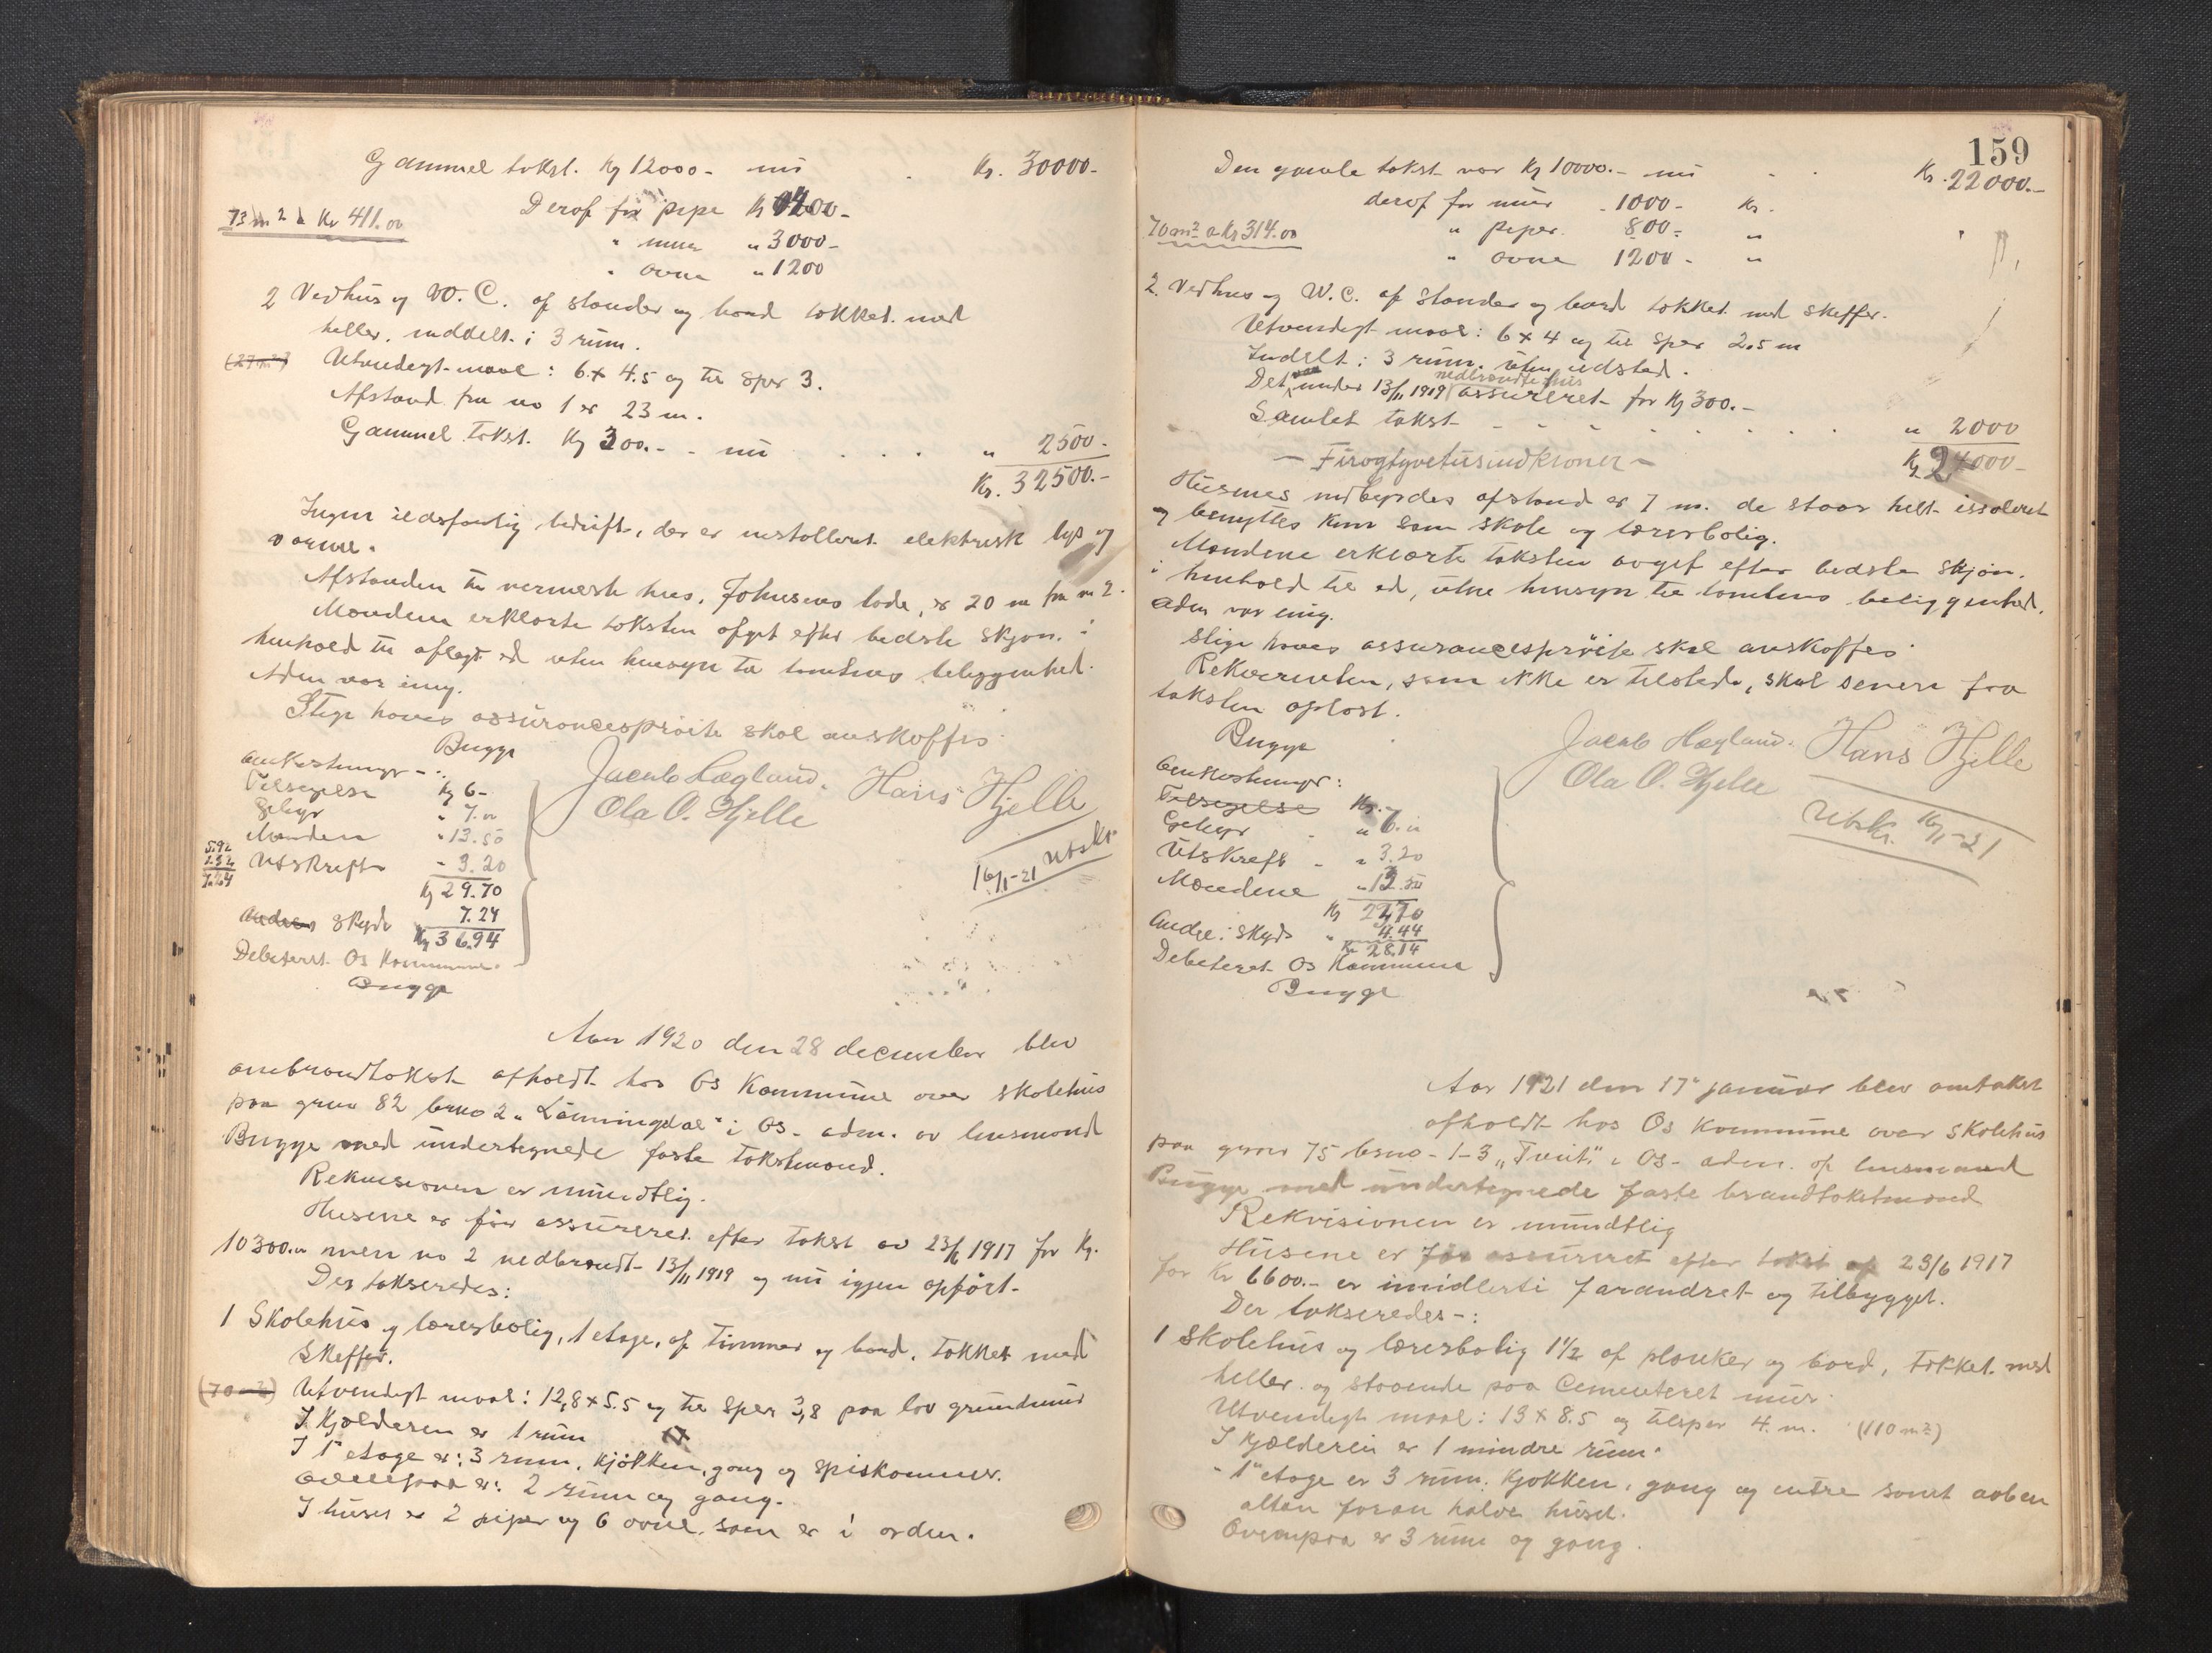 Gammel takst. Kr 12000.- nu . Kr. 30000.-
73 m2 à Kr 411.00
Derof for pipe Kr 400.-
" mur " 3000.-
" ovne " 1200
2 Vedhus og W.C. af stander og bord tækket med
heller. inddelt i 3 rum.
(27 m2) Utvendigt maal: 6 x 4.5 og til sper 3.
Afstand fra no 1 er 23 m.
Gammel takst. Kr 300.- - nu . . . " 2500.-
Kr. 32500.-
Ingen ildsfarlig bedrift, der er installeret elektrisk lys og
varme.
Afstanden til nærmeste hus, Johnsens lade, er 20 m fra no 2.
Mændene erklærte taksten afgit efter bedste skjøn. i
henhold til aflagt ed uten hensyn til tomtens beliggenhed.
Alden var enig.
Stige haves assurancesprøite skal anskaffes.
Bugge
Omkostninger -:
Tilsigelse Kr 6-
Gebyr " 7.00
Mændene " 13.50
Utskrift - 3.20
Kr 29.70
5.92
1.32
7.24
Andres skyds 7.24
Kr 36.94
Debiteret Os Kommune.
Bugge
Jacob Hægland. Hans Hjelle
Ola O. Hjelle
Utskr. 16/1-21
Aar 1920 den 28 december blev
ombrandtakst afholdt hos Os Kommune over skolehus
paa grno 82 brno 2 "Lønningdal" i Os - adm. av lensmand
Bugge med undertegnede faste takstmænd.
Rekvisionen er mundtlig.
Husene er før assureret efter takst av 23/6 1917 for Kr.
10300.00 men no 2 nedbrændt 13/11 1919 og nu igjen opført.
Der takseredes:
1 Skolehus og lærerbolig, 1 etage, af tømmer og bord. tækket med
skeffer.
(70 m2) Utvendigt maal: 12,8 x 5.5 og til sper 3,8 paa lav grundmur
I Kjælderen er 1 rum
I 1ste etage er: 3 rum, kjøkken, gang og spiskammer.
Ovenpaa er: 2 rum og gang.
I huset er 2 piper og 6 ovne. som er i orden.
159
Den gamle takst var Kr 10000.- nu - . Kr. 22000.-
derof for mur - 1000 - Kr.
70 m2 a Kr 314.00
" piper. 800 - "
" ovne 1200 - "
2. Vedhus og W.C. af stander og bord tækket med skeffer.
Utvendigt maal: 6 x 4 og til sper 2.5 m
Inddelt i 3 rum. uten ildsted.
Det under 13/11 1919 nedbrændte hus assureret for Kr 300.-
Samlet takst - - - - . . . . " 2000
- Firogtyvetusindkroner - Kr 24000-
Husenes indbyrdes afstand er 7 m. de staar helt isoleret
og benyttes kun som skole og lærerbolig.
Mændene erklærte taksten avgit efter bedste skjøn.
i henhold til ed, uten hensyn til tomtens beliggenhed.
Alden var enig.
Stige haves assurancesprøite skal anskaffes.
Rekvirenten, som ikke er tilstede, skal senere faa
taksten oplæst.
Bugge
Omkostninger:
Tilsigelse Kr.-
Gebyr - " 6.00
Utskrift - " 3.20
Mændene - " 13.50
Kr 22.70
Andre: skyds " 4.44
Kr 28.14
Debiteret Os Kommune
Bugge
Jacob Hægland. Hans Hjelle
Ola O. Hjelle
Utskr. 16/1-21
Aar 1921 den 17de januar blev omtakst
afholdt hos Os Kommune over skolehus
paa grno 75 brno - 1-3 "Tveit" i Os - adm. af lensmand
Bugge med undertegnede faste brandtakstmænd
Rekvisionen er mundtlig
Husene er før assureret efter takst af 23/6 1917
for Kr 6600.- er imidlerti forandret og tilbygget.
Der takseredes -:
1 Skolehus og lærerbolig 1½ af planker og bord, tækket. med
heller og staaende paa cementeret mur.
Utvendigt maal: 13 x 8.5 og tilsper 4. m. (110 m2)
I kjælderen er 1 mindre rum.
- 1ste etage er 3 rum. kjøkken, gang og entre samt aaben
altan foran halve huset.
Ovenpaa er 3 rum og gang.